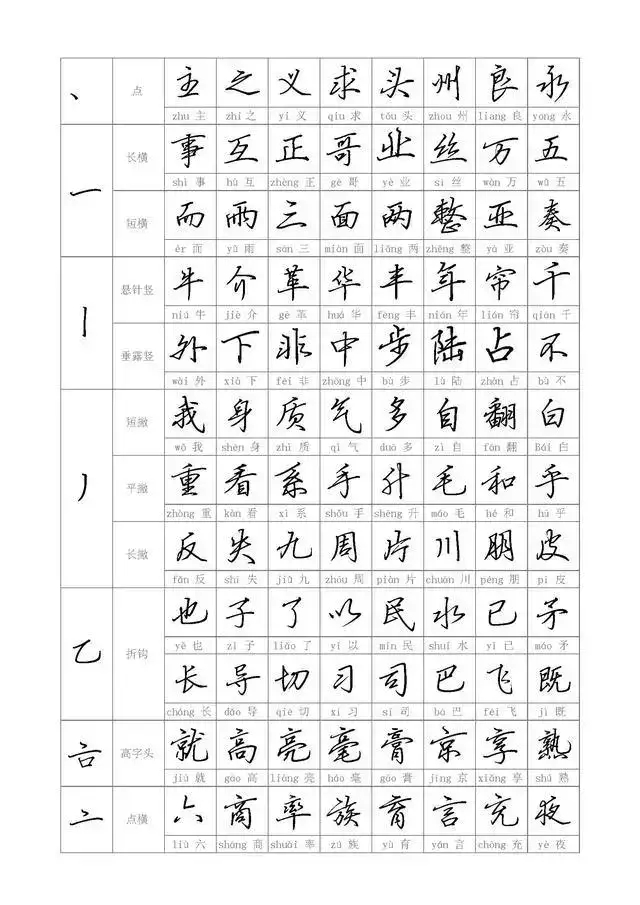 丶 点 主 之 义 求 头 州 良 永
zhu 主 zhi 之 yi 义 qiu 求 tóu 头 zhou 州 liang 良 yong 永
一 长横 事 互 正 哥 业 丝 万 五
shì 事 hù 互 zhèng 正 gē 哥 yè 业 sī 丝 wàn 万 wǔ 五
短横 而 雨 三 面 两 整 亚 奏
ér 而 yǔ 雨 sān 三 miàn 面 liǎng 两 zhěng 整 yà 亚 zòu 奏
丨 悬针竖 牛 介 革 华 丰 年 帘 千
niú 牛 jiè 介 gé 革 huá 华 fēng 丰 nián 年 lián 帘 qiān 千
垂露竖 外 下 非 中 步 陆 占 不
wài 外 xià 下 fēi 非 zhōng 中 bù 步 lù 陆 zhàn 占 bù 不
丿 短撇 我 身 质 气 多 自 翻 白
wǒ 我 shēn 身 zhì 质 qì 气 duō 多 zì 自 fān 翻 Bái 白
平撇 重 看 系 手 升 毛 和 乎
zhòng 重 kàn 看 xì 系 shǒu 手 shēng 升 máo 毛 hé 和 hū 乎
长撇 反 失 九 周 片 川 朋 皮
fǎn 反 shī 失 jiǔ 九 zhōu 周 piàn 片 chuān 川 péng 朋 pí 皮
乙 折钩 也 子 了 以 民 水 已 矛
yě 也 zǐ 子 liǎo 了 yǐ 以 mín 民 shuǐ 水 yǐ 已 máo 矛
长 导 切 习 司 巴 飞 既
cháng 长 dǎo 导 qiē 切 xí 习 sī 司 bā 巴 fēi 飞 jì 既
高字头 就 高 亮 毫 膏 京 享 熟
jiù 就 gāo 高 liàng 亮 háo 毫 gāo 膏 jīng 京 xiǎng 享 shú 熟
亠 点横 六 商 率 族 育 言 充 夜
liù 六 shāng 商 shuài 率 zú 族 yù 育 yán 言 chōng 充 yè 夜